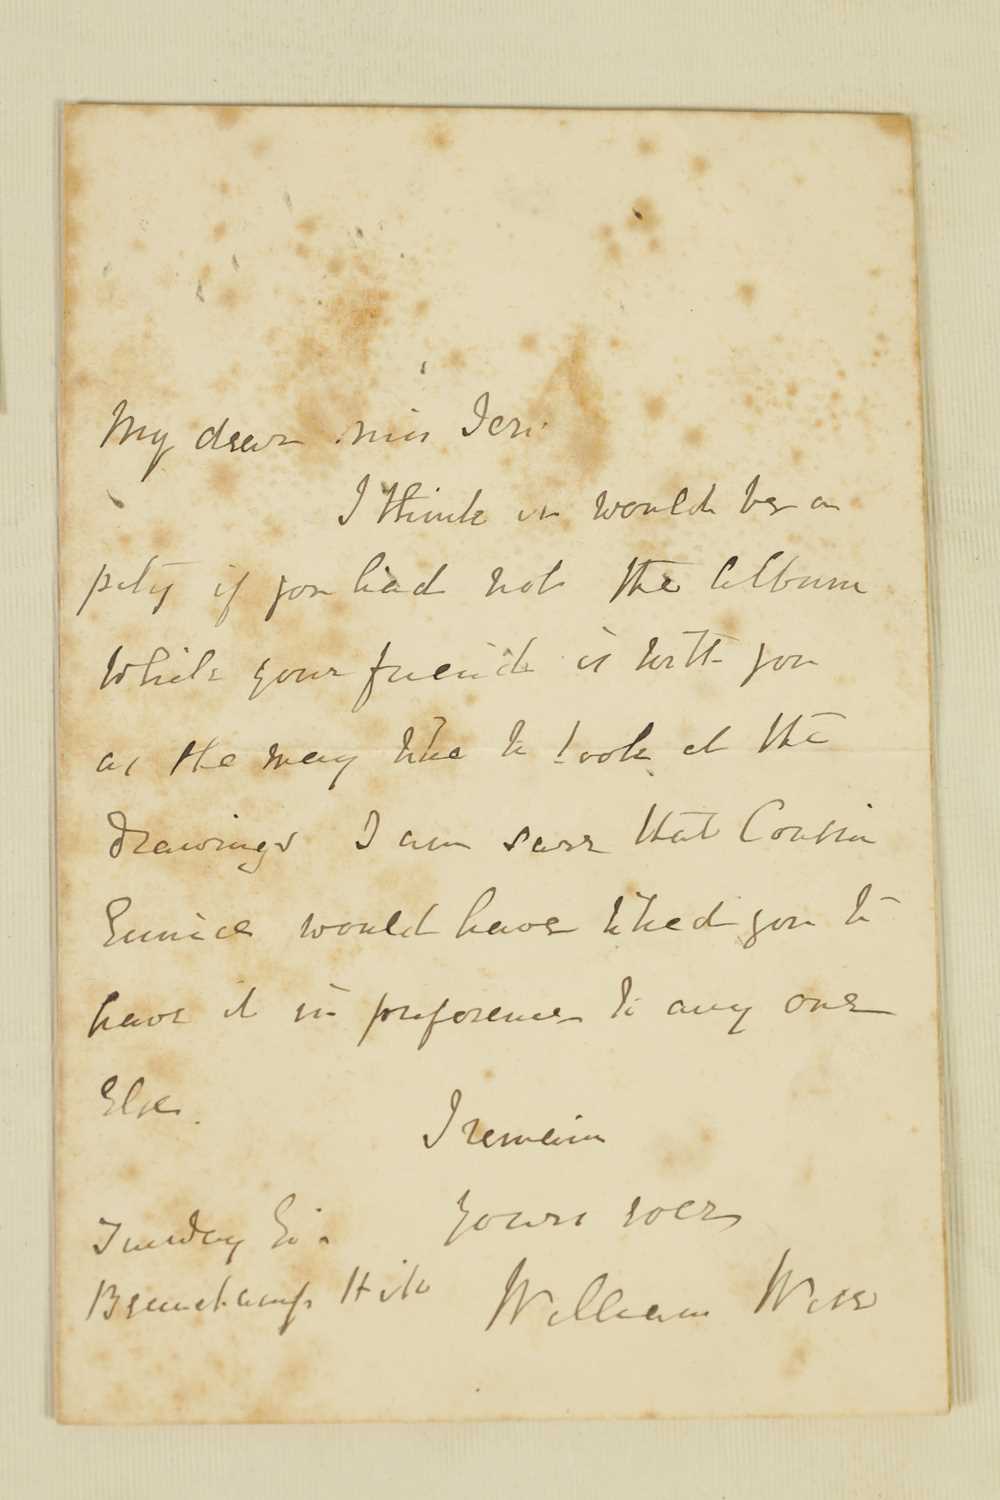 My dear Miss
I think it would be a
pity if you had not the Album
While your friend is with you
as she may like to look at the
Drawings I am sure that Cousin
Eunice would have liked you to
have it in preference to any one
Else.
I remain
Yours
Tuesday
Beauchamp
William